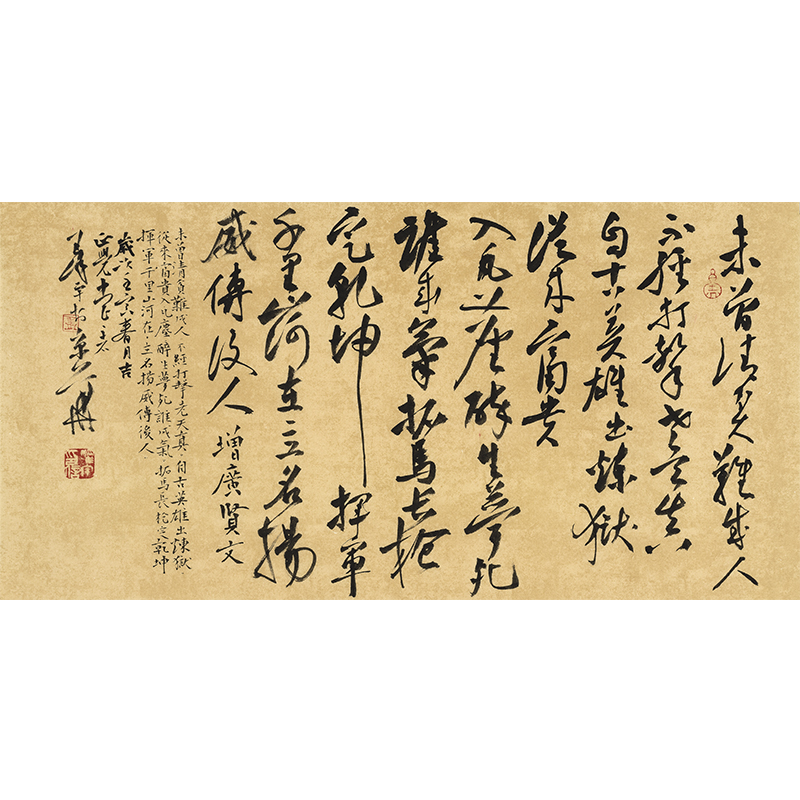 未曾清貧難成人
不經打擊老天真
自古英雄出煉獄
從來富貴
入凡塵醉生夢死
誰成氣拓馬長槍
定乾坤揮軍
千里山河在立名揚
威傳後人
增廣賢文
未曾清貧難成人不經打擊老天真自古英雄出煉獄
從來富貴入凡塵醉生夢死誰成氣拓馬長槍定乾坤
揮軍千里山河在立名揚威傳後人
歲次壬寅春月吉